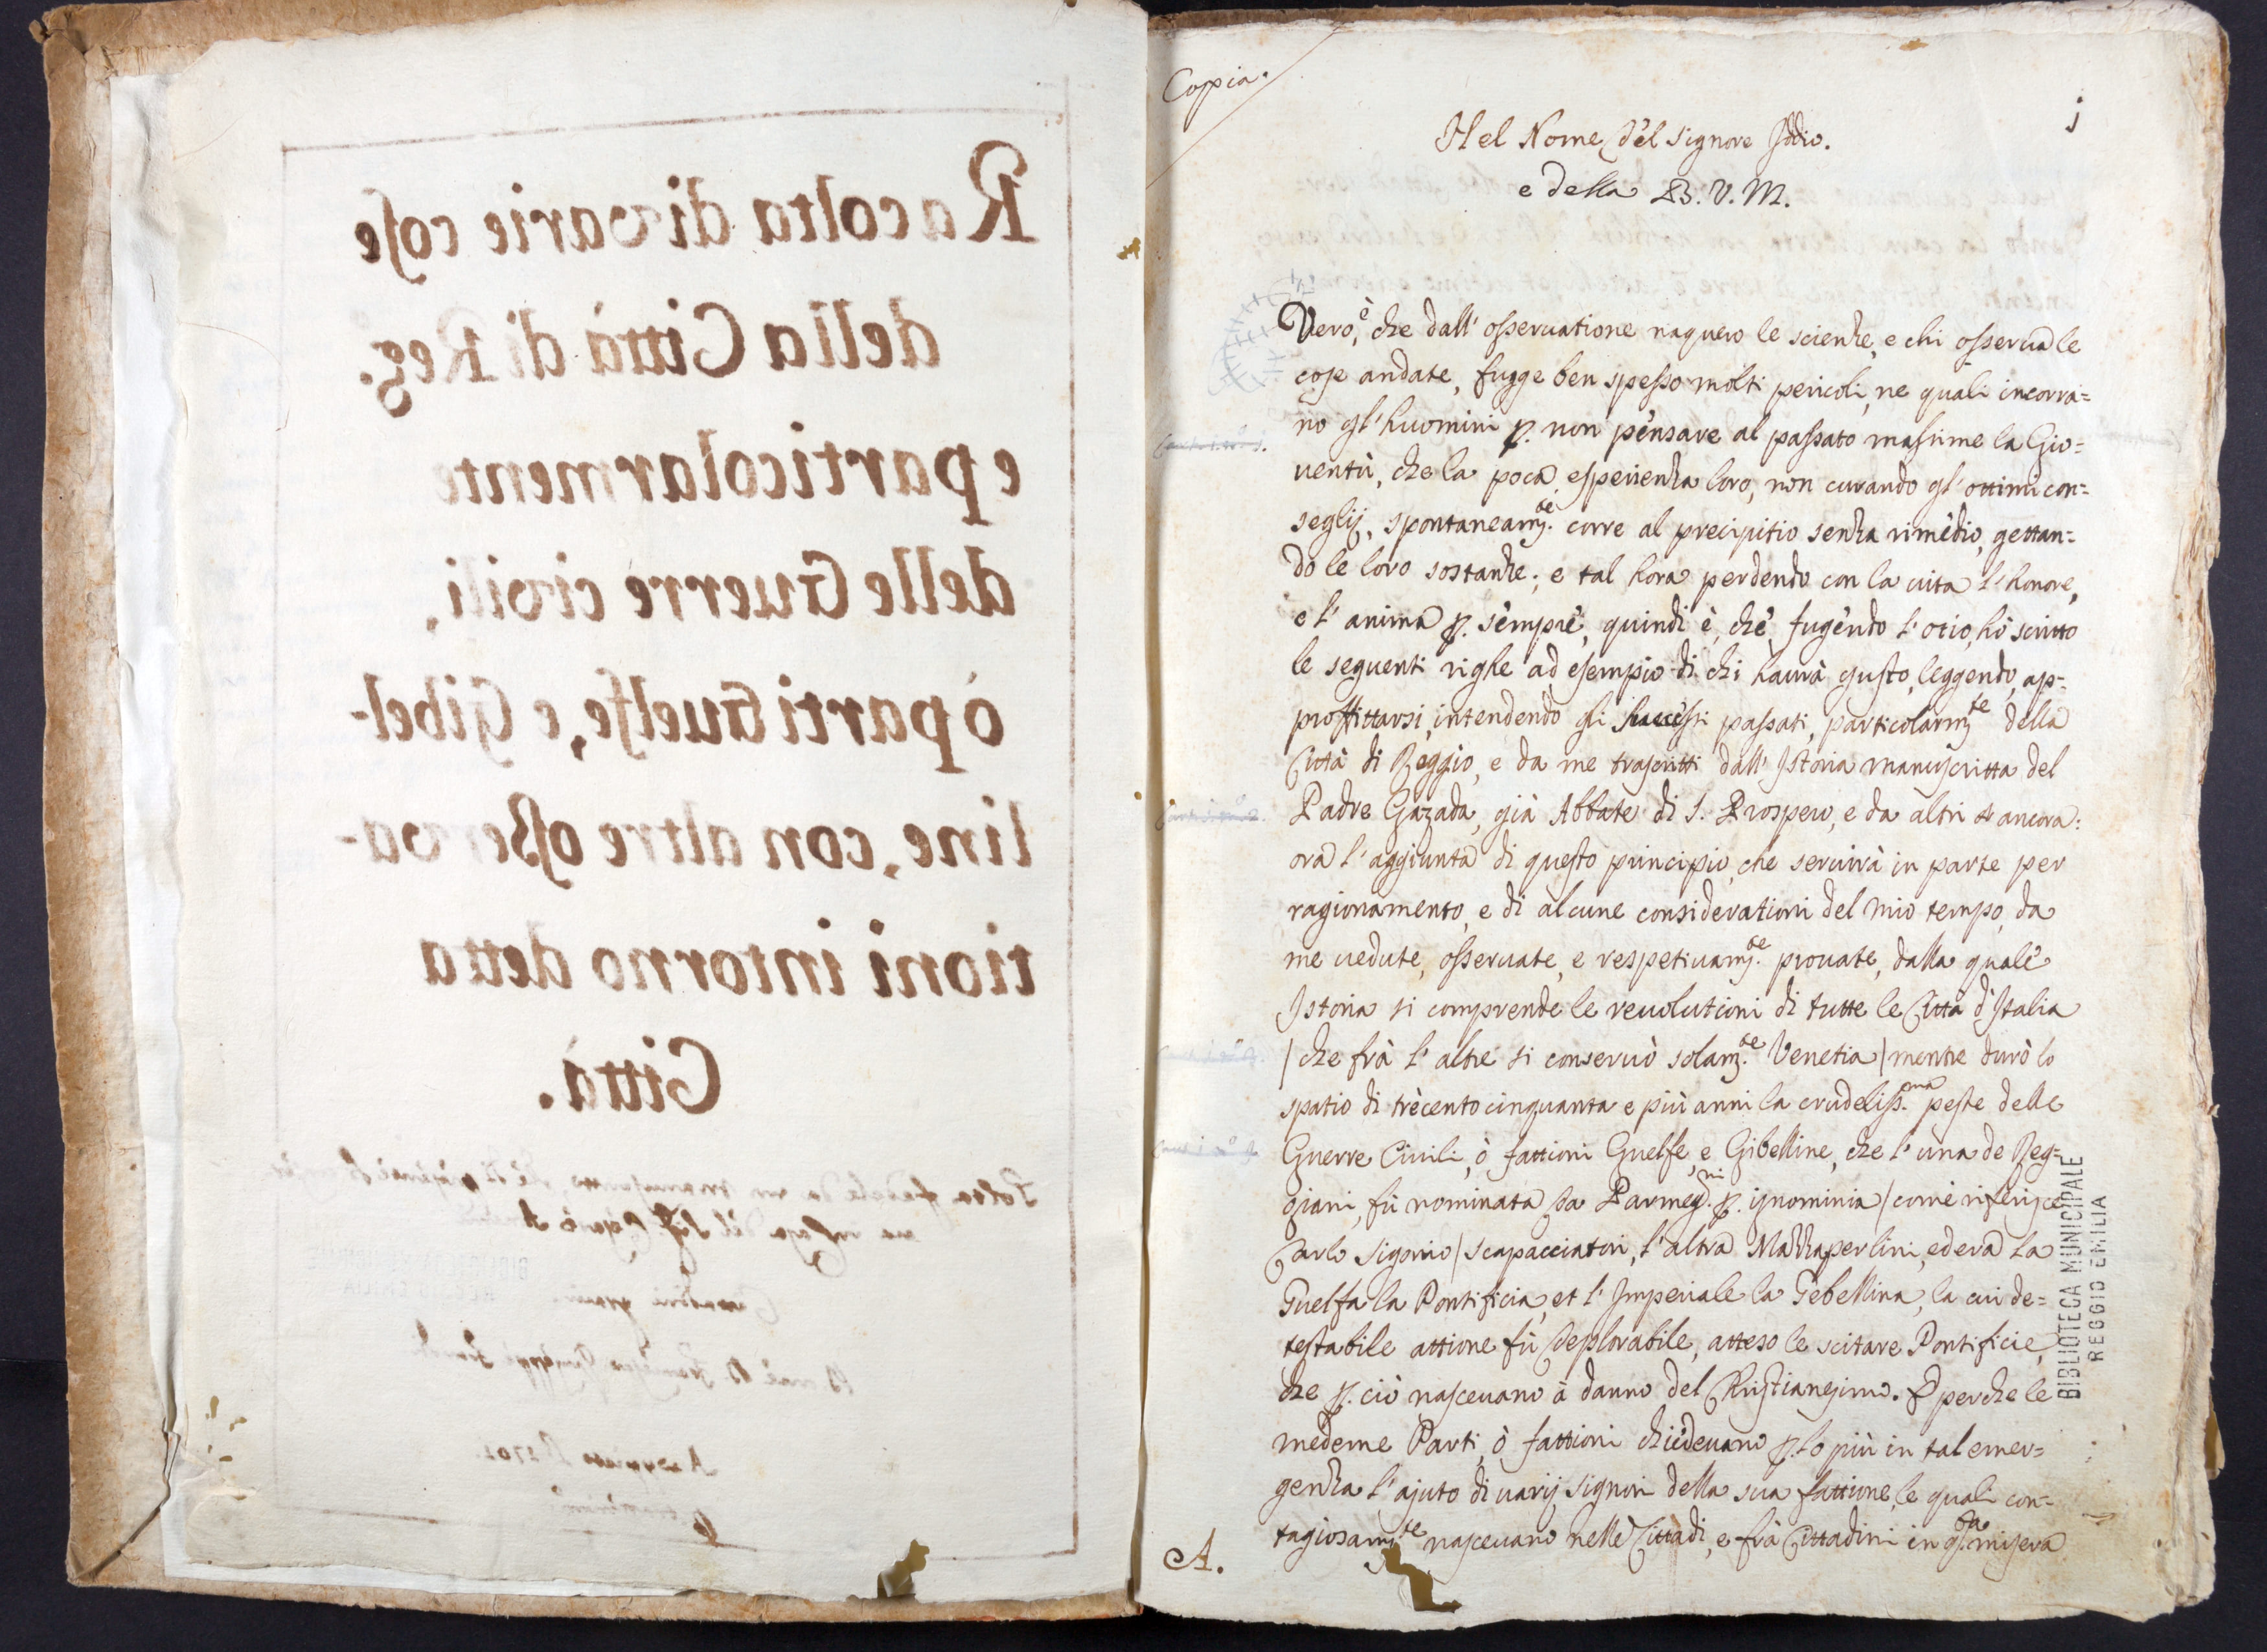 Racolta di varie cose
della Città di Reg.
e particolarmente
delle Guerre civili,
ò parti Guelfe, e Gibel-
line, con altre osserva-
tioni intorno detta
Città.
1702
Copia.
j
Nel Nome del Signore Iddio.
e della B. V. M.
Vero, è che dall' osseruatione naquero le scienze, e chi osserua le
cose andate, fugge ben spesso molti pericoli, ne quali incorra=
no gl' huomini p. non pensare al passato massime la Gio=
uentù, che la poca esperienza loro, non curando gl' ottimi con=
seglij, spontaneam.te corre al precipitio senza rimedio, gettan=
do le loro sostanze; e tal hora perdendo con la uita l' honore,
e l' anima p. sempre, quindi è, che fugendo l' otio, hò scritto
le seguenti righe ad esempio di chi haurà gusto, leggendo, ap=
proffittarsi, intendendo gli successi passati, particolarm.te della
Città di Reggio, e da me trascritti dall' Istoria manuscritta del
Padre Gazada, già Abbate di S. Prospero, e da altri ancora:
ora l' aggiunta di questo principio, che seruirà in parte per
ragionamento, e di alcune considerationi del mio tempo, da
me uedute, osseruate, e respetiuam.te prouate, dalla quale
Istoria si comprende le reuolutioni di tutte le Città d' Italia
/ che frà l' altre si conseruò solam.te Venetia / mentre durò lo
spatio di trècento cinquanta e più anni la crudeliss.ma peste delle
Guerre Ciuili, ò fattioni Guelfe, e Gibelline, che l' una de Reg=
giani, fù nominata da Parmeg.ni p. ignominia / come riferisce
Carlo Sigonio / scapacciatori, l' altra Mazzaperlini, ed era la
Guelfa la Pontificia, et l' Imperiale la Gebellina, la cui de=
testabile attione fù deplorabile, atteso le scitare Pontificie,
che p. ciò nasceuano à danno del Christianesimo. E perche le
medeme Parti, ò fattioni chiedeuano p. lo più in tal emer=
genza l' ajuto di uarij Signori della sua fattione, le quali con=
tagiosam.te nasceuano nelle Cittadi, e frà Cittadini in q.sta misera
A.
BIBLIOTECA MUNICIPALE
REGGIO EMILIA